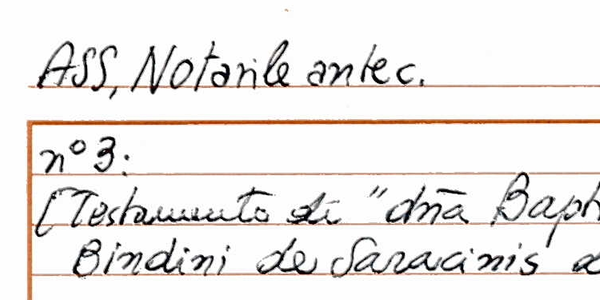 ASS, Notarile antec.
n° 3:
[Testamento di "dña Baph
Bindini de Saracinis